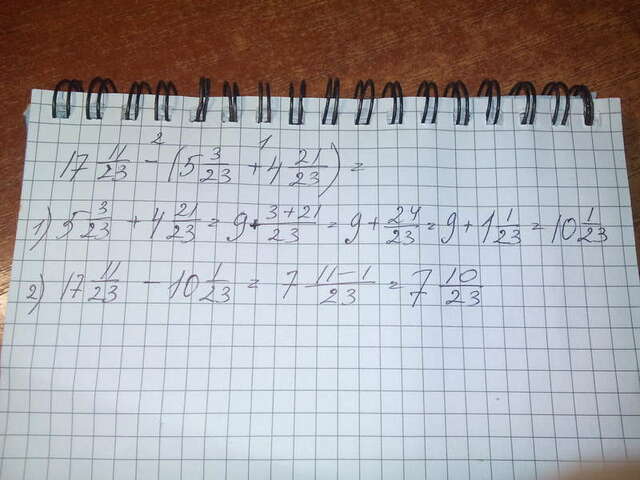 17 11/23 - (5 3/23 + 4 21/23) =
1) 5 3/23 + 4 21/23 = 9 + 3+21/23 = 9 + 24/23 = 9 + 1 1/23 = 10 1/23
2) 17 11/23 - 10 1/23 = 7 11-1/23 = 7 10/23